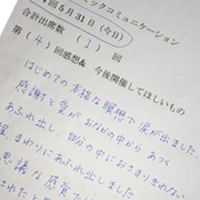 回5月31日(今日)
ックコミュニケーション
合計出席数 ( 1 ) 回
第 ( 4 ) 回感想& 今後開催してほしいもの
はじめての本格な瞑想で涙が出ました。
感謝と愛がおなかの中からあつく
あふれ出し、胸の中におさまりきれない
、まわりにあふれ出しました
思議な感覚で
されたと